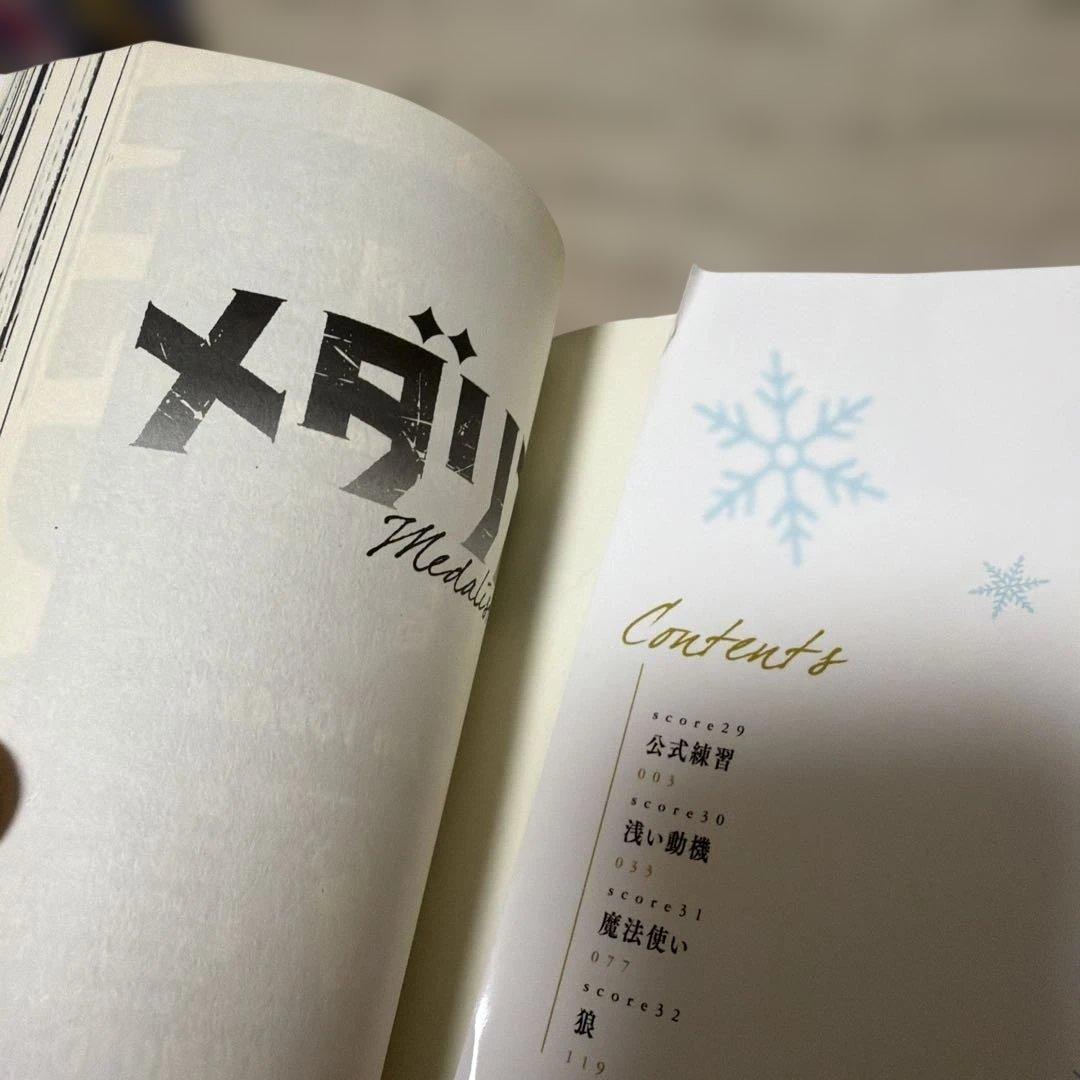 メダリ
Medalis
Contents
score29
公式練習
003
score30
浅い動機
033
score31
魔法使い
077
score32
狼
119